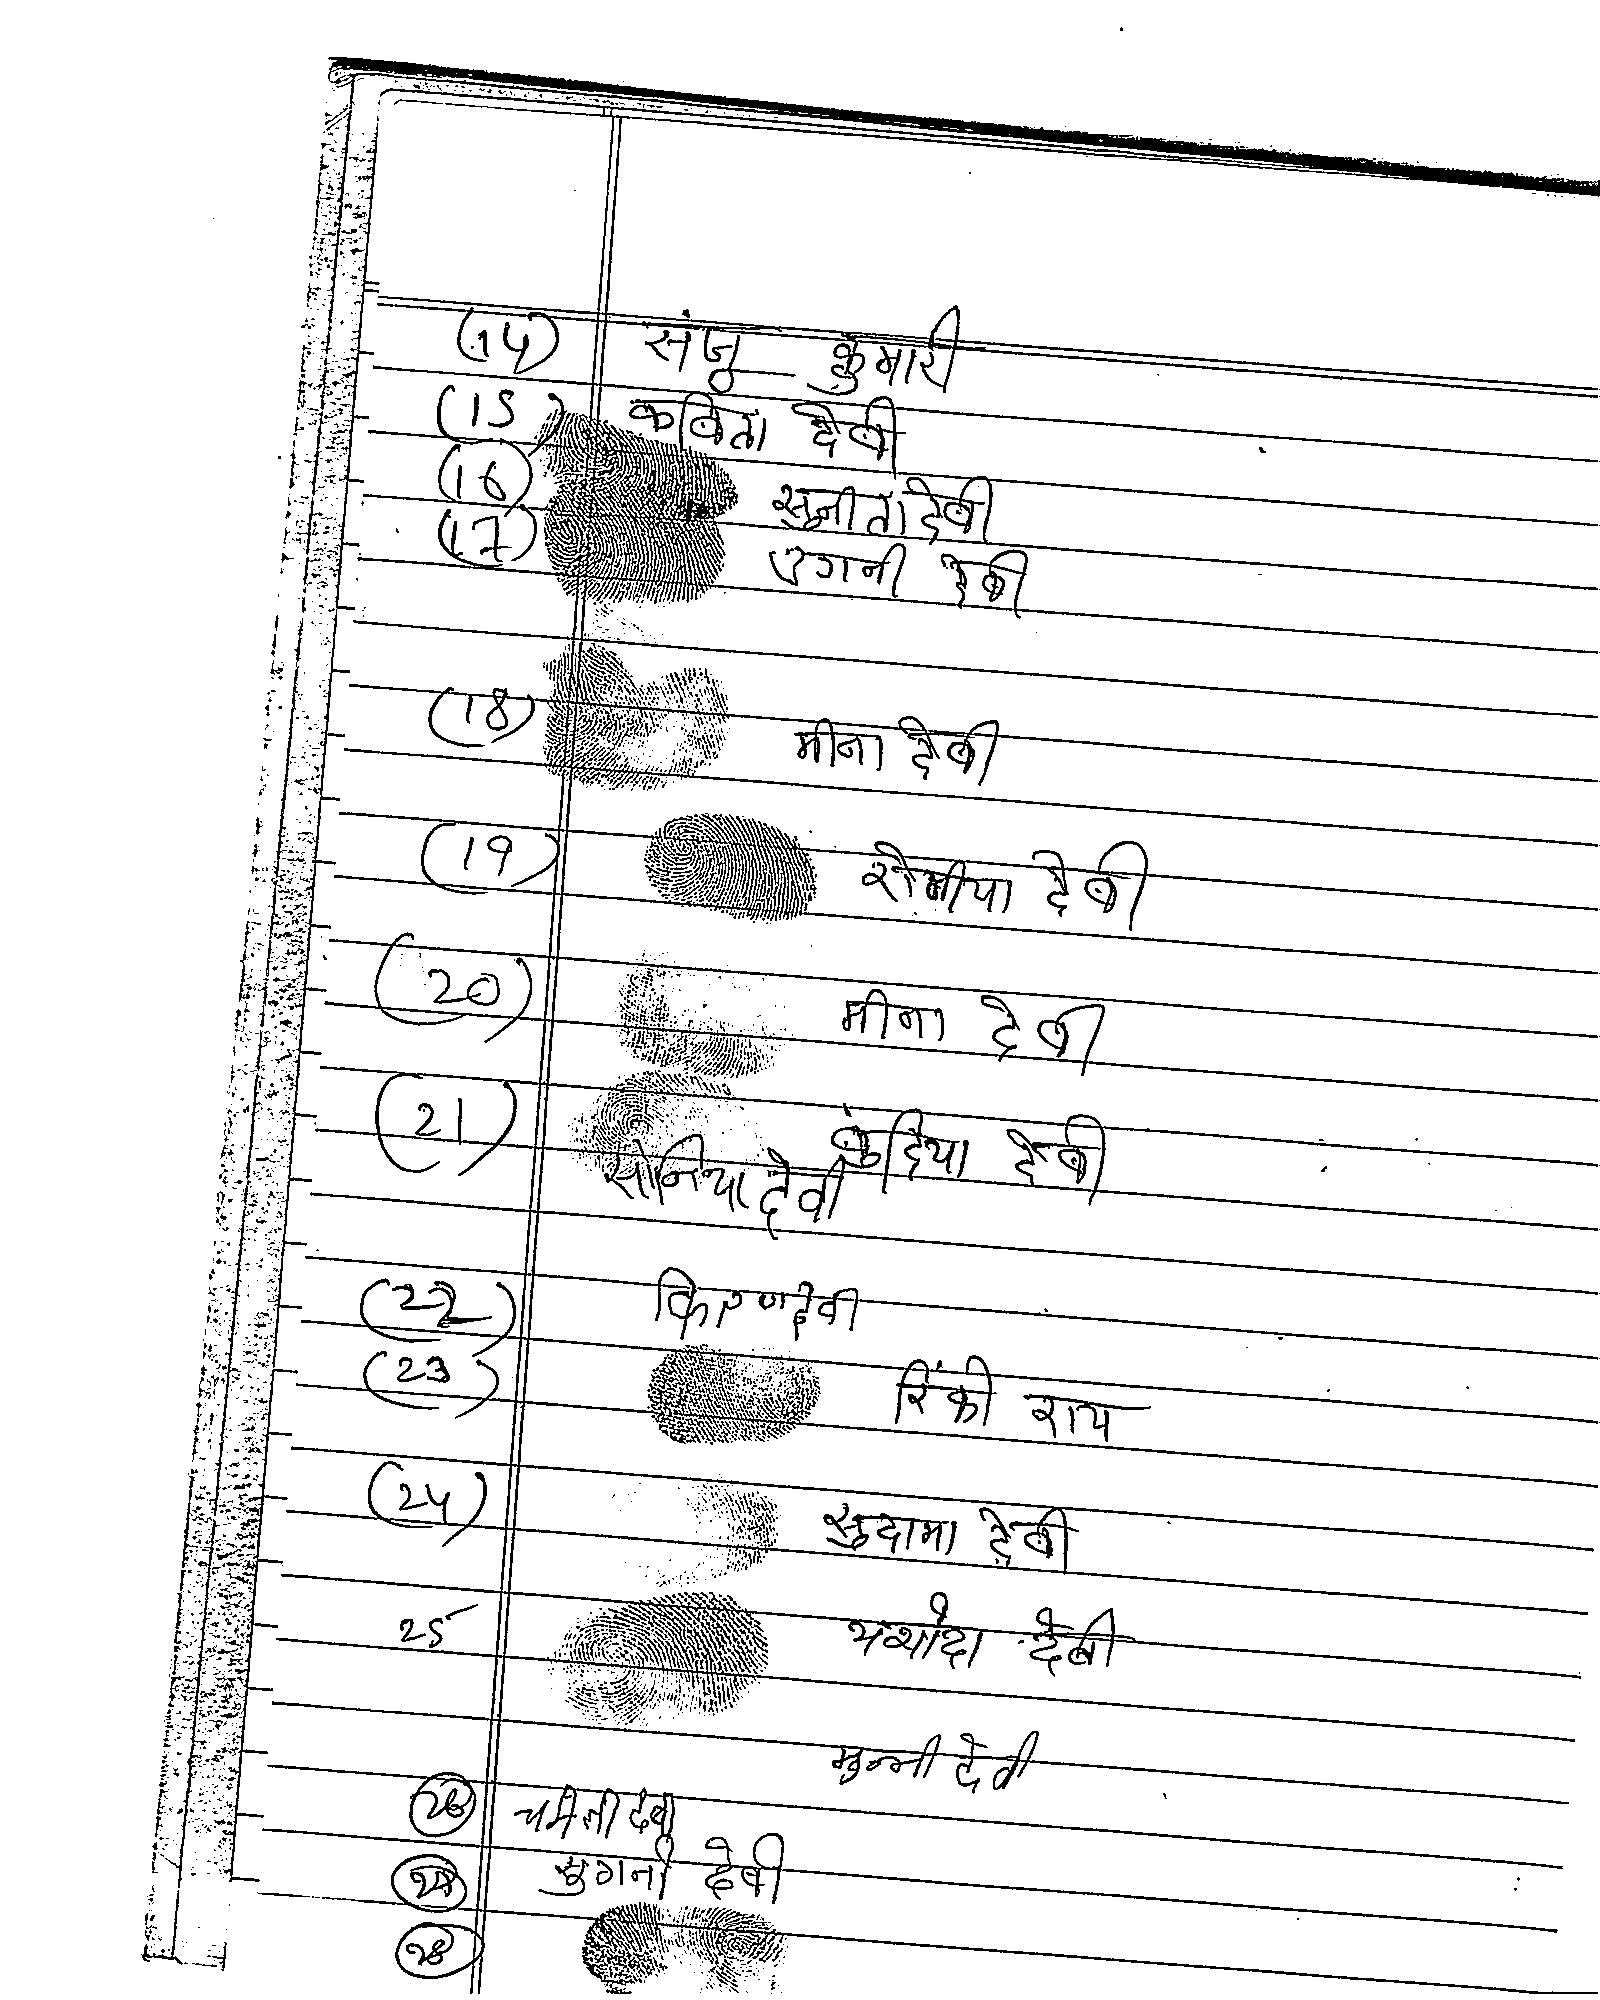 (14) संजू कुमारी
(15) कविता देवी
(16) सुनीता देवी
(17) एगनी देवी
(18) मीना देवी
(19) सोमीया देवी
(20) मीना देवी
(21) बुंदिया देवी
सोनिया देवी
(22) किरण देवी
(23) रिंकी राय
(24) सुदामा देवी
25 यशोदा देवी
मुन्नी देवी
26 चमेली देवी
27 सुगनी देवी
28